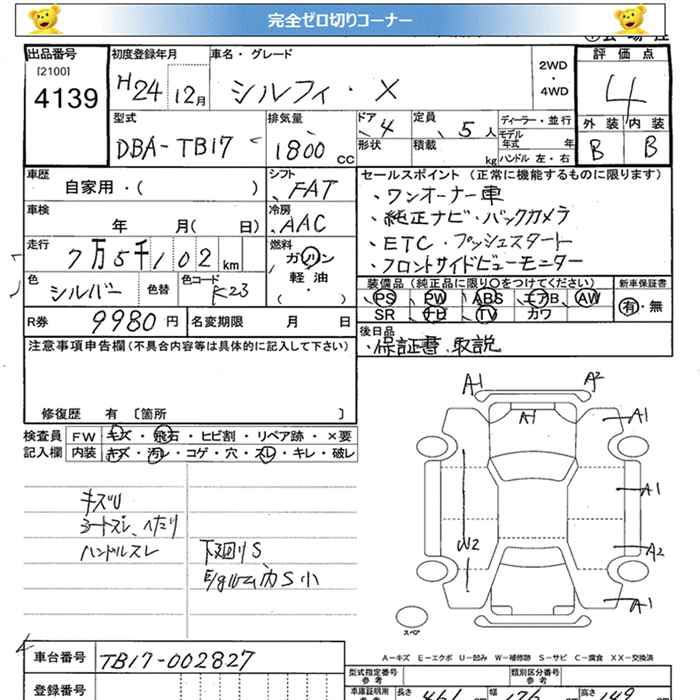 完全ゼロ切りコーナー
出品番号 初度登録年月 車名・グレード 2WD・4WD 評価点
[2100]
4139 H24 12月 シルフィ・X 4
型式 排気量 ドア 4 定員 5人 ディーラー・並行 外装 内装
DBA-TB17 1800 CC 形状 積載 kg モデル年式 年 ハンドル 左・右 B B
車歴 シフト セールスポイント(正常に機能するものに限ります)
自家用・( ) FAT ・ワンオーナー車
車検 冷房 ・純正ナビ・バックカメラ
年 月( 日) AAC ・ETC・プッシュスタート
走行 7万5千102km 燃料 ガソリン ・フロントサイドビューモニター
軽・油
・( )
色 シルバー 色替 色コード K23
装備品(純正品に限り○をつけてください) 新車保証書
PS PW ABS エアB AW 有・無
SR ナビ TV カワ
R券 9980円 名変期限 月 日
後日品
・保証書、取説
注意事項申告欄(不具合内容等は具体的に記入して下さい)
修復歴 有 [箇所 ]
検査員 FW キズ・飛石・ヒビ割・リペア跡・×要
記入欄 内装 キズ・汚レ・コゲ・穴・スレ・キレ・破レ
キズU
シートスレ、ヘタリ
ハンドルスレ
下廻りS、
E/gルーム内S小
A1 A2
A1 A1
A1
W2 A2
A1
スペア
A-キズ E-エクボ U-凹み W-補修跡 S-サビ C-腐食 XX-交換済
車台番号 TB17-002827
登録番号
型式指定番号 参考 類別区分番号 参考
車庫証明用 参考 長さ 461 幅 176 高さ